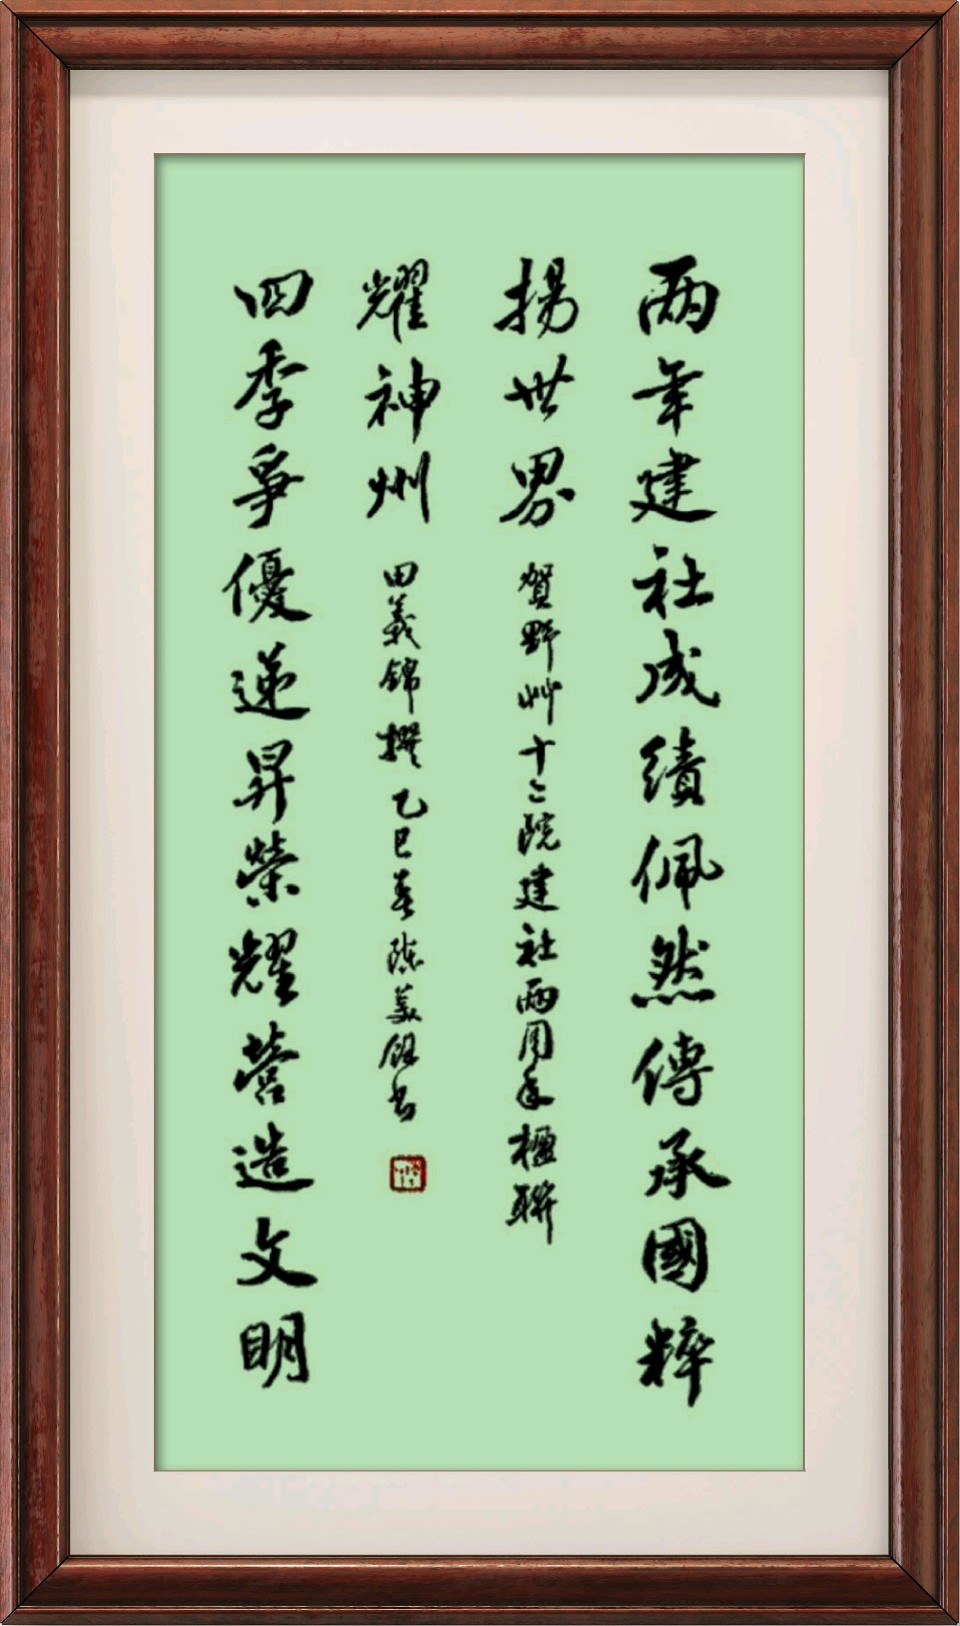 兩年建社成績佩然傳承國粹
揚世界 賀野艸十二院建社兩周年楹聯
四季爭優递昇榮耀營造文明
耀神州 田義錦撰 乙巳春 陳美書